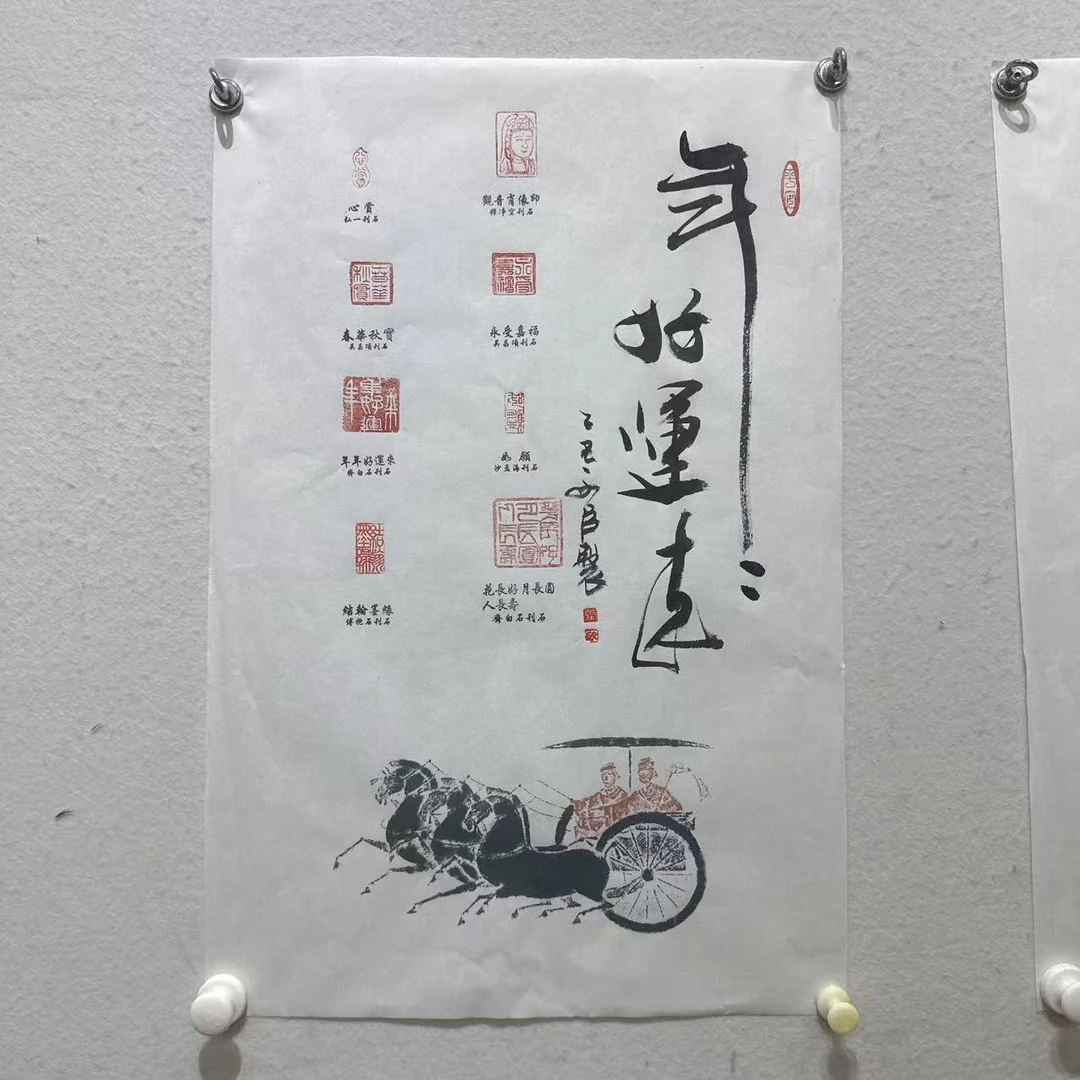 年〻好運来
觀音肖像印
釋净空刊石
永受嘉福
吳昌碩刊石
如願
沙孟海刊石
花長好月長圓
人長壽
齊白石刊石
心賞
弘一刊石
春華秋實
吳昌碩刊石
年年好運來
齊白石刊石
結翰墨緣
傅抱石刊石